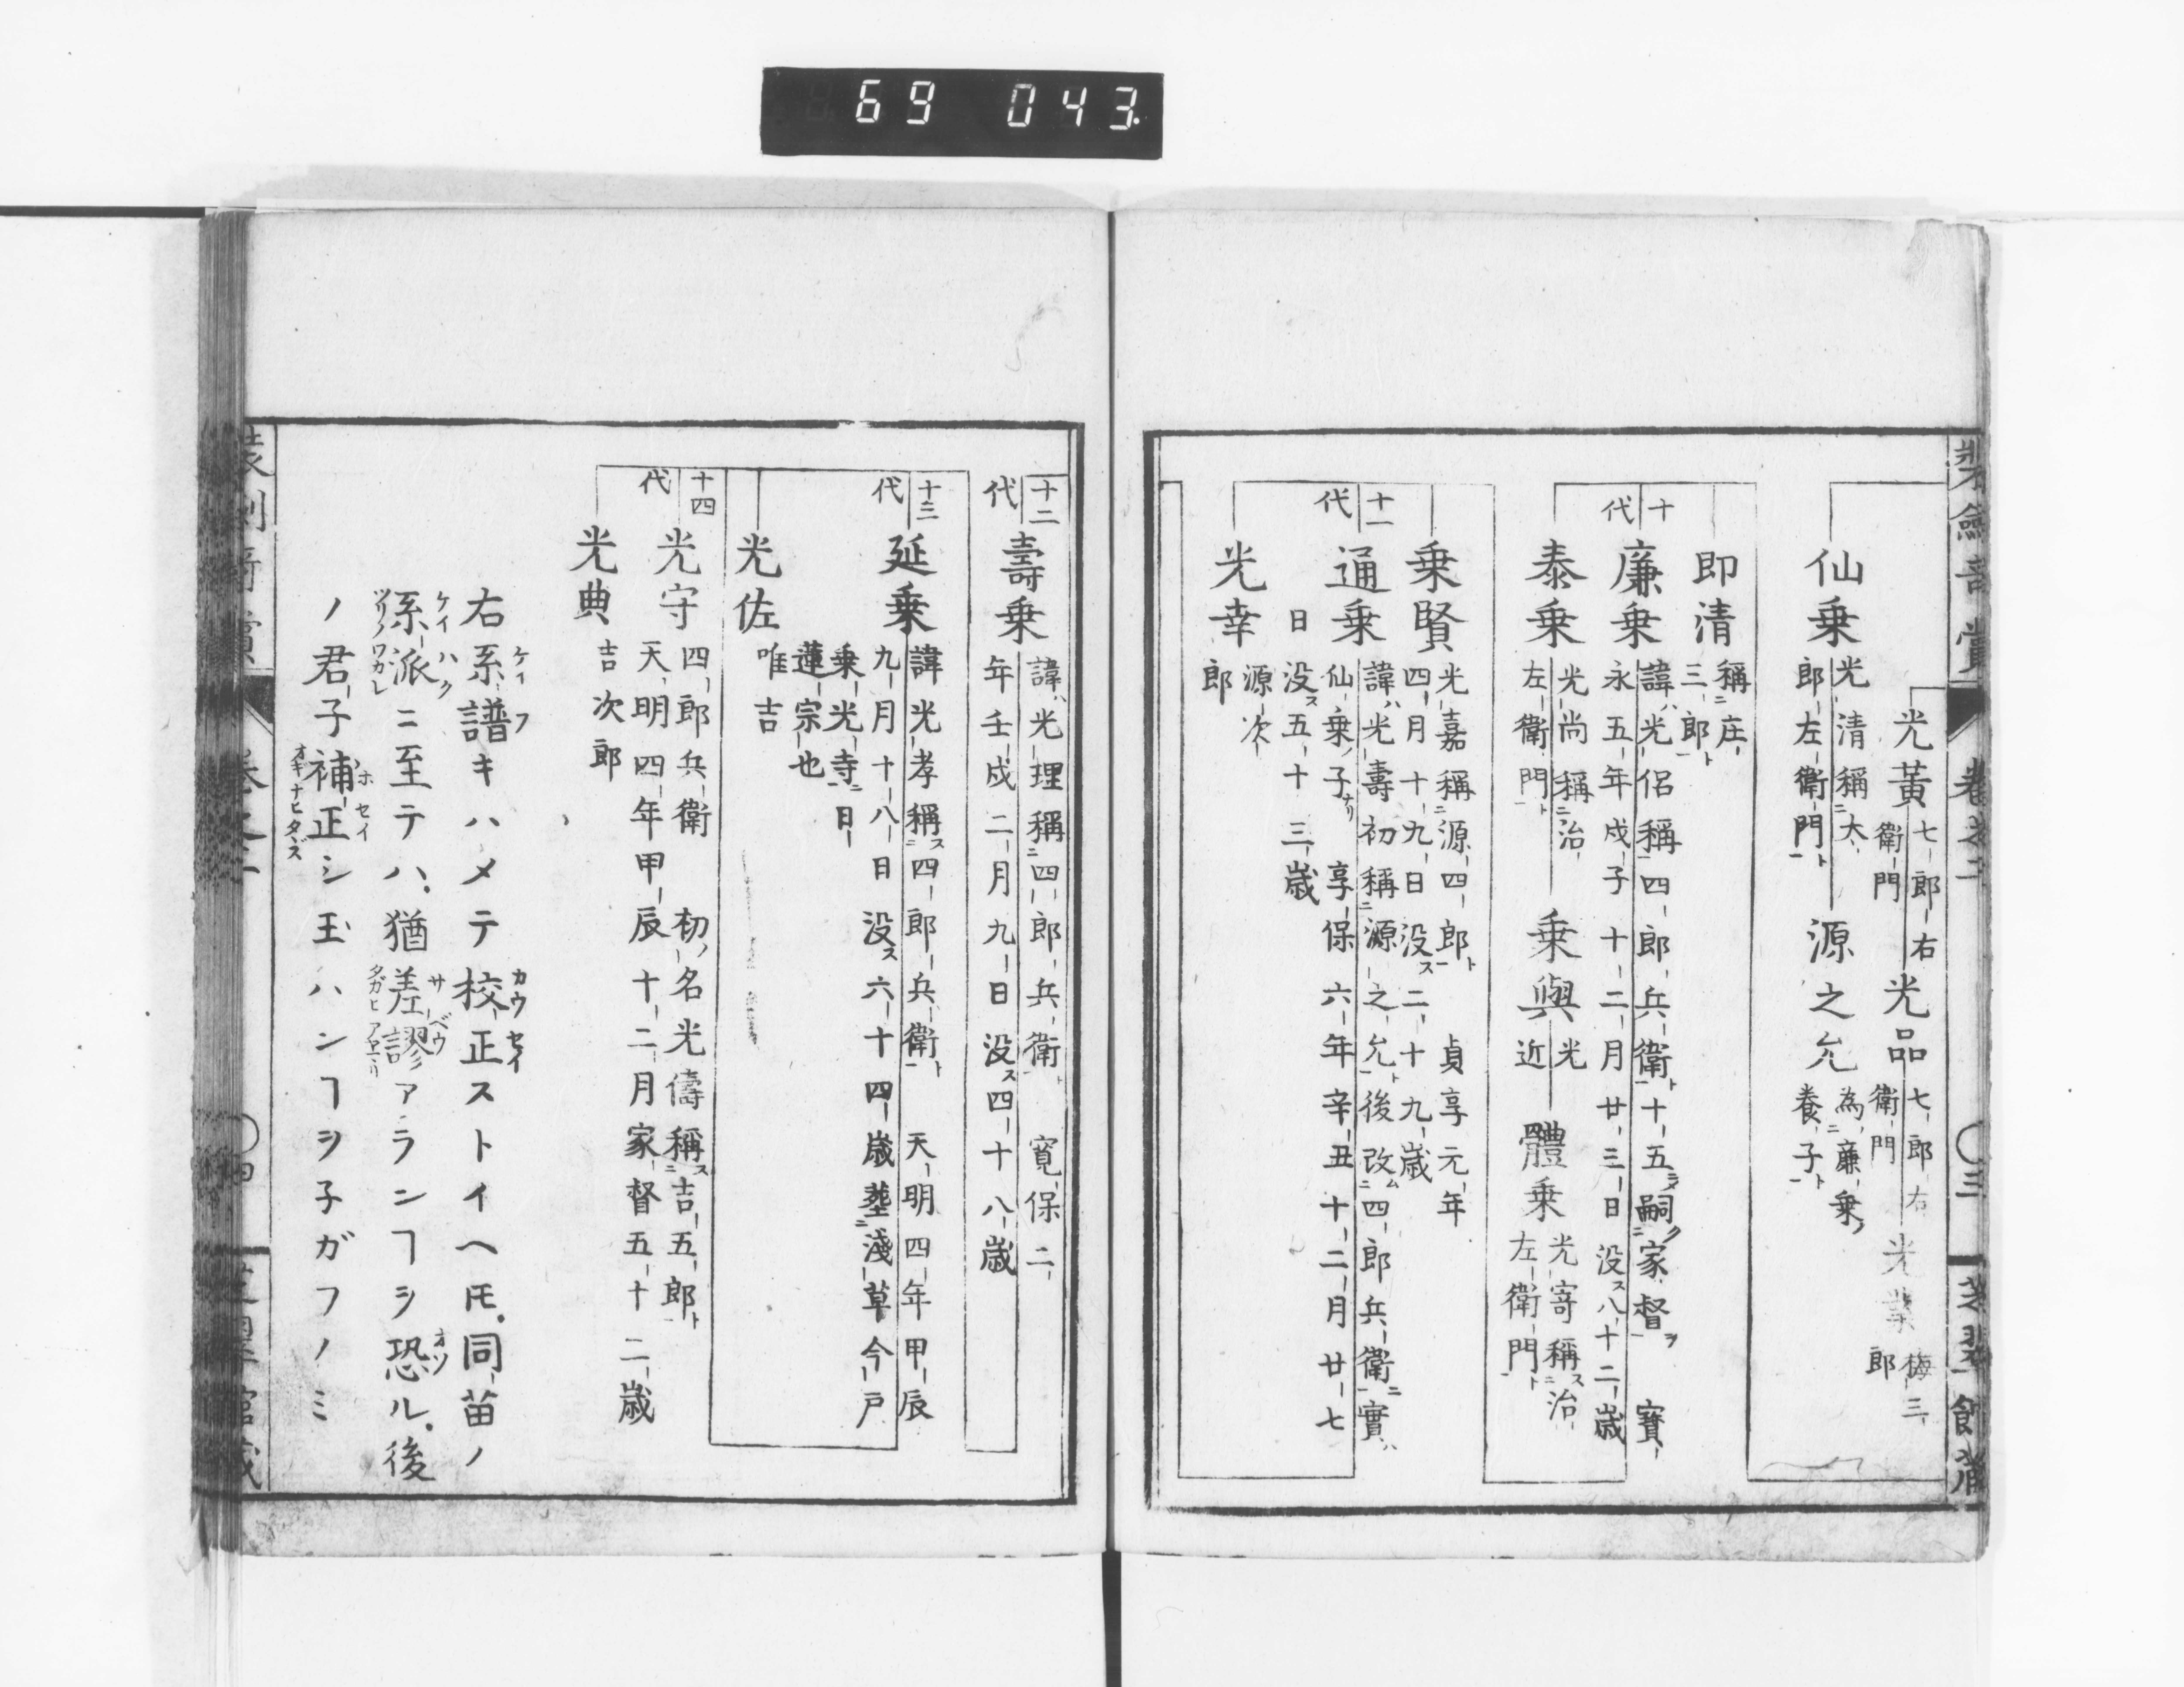 69 043
光黃
七郎右
衛門
光品
七郎右
衛門
光業
梅三
郎
仙乗
光清稱大
郎左衛門
源之允
為廉乗
養子
即清
稱庄
三郎
十
代
廉乗
諱光侶稱四郎兵衛十五嗣家督 寳
永五年戍子十二月廿三日没八十二歳
泰乗
光尚稱治
左衛門
乗與
光
近
體乗
光寄稱治
左衛門
乗賢
光嘉稱源四郎 貞享元年
四月十九日没二十九歳
十一
代
通乗
諱光壽初稱源之允後改四郎兵衛實
仙乗子 享保六年辛丑十二月廿七
日没五十三歳
光幸
源次
郎
十二
代
壽乗
諱光理稱四郎兵衛 寛保二
年壬戌二月九日没四十八歳
十三
代
延乗
諱光孝稱四郎兵衛 天明四年甲辰
九月十八日没六十四歳塟淺草今戸
乗光寺日
蓮宗也
光佐
唯吉
十四
代
光守
四郎兵衛 初名光儔稱吉五郎
天明四年甲辰十二月家督五十二歳
光典
吉次郎
右系譜キハメテ校正ストイヘ𪜈同苗ノ
系派ニ至テハ猶差謬アランヿヲ恐ル後
ノ君子補正シ玉ハンヿヲ子ガフノミ